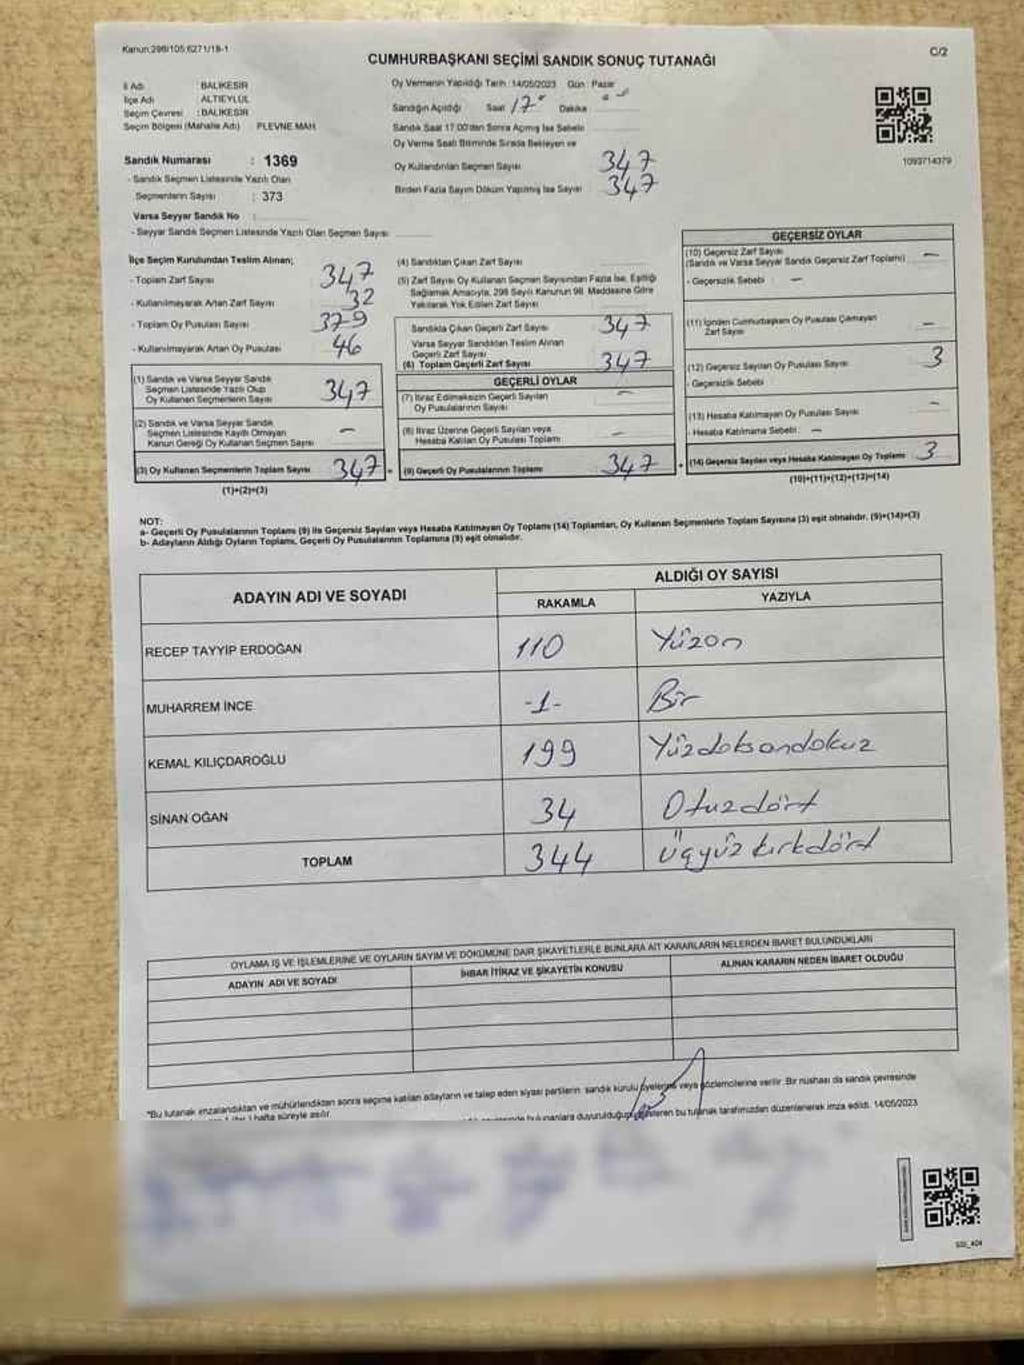 Kanun:298/105;6271/18-1
C/2
CUMHURBAŞKANI SEÇİMİ SANDIK SONUÇ TUTANAĞI
İl Adı : BALIKESİR
İlçe Adı : ALTIEYLÜL
Seçim Çevresi : BALIKESİR
Seçim Bölgesi (Mahalle Adı) PLEVNE MAH.
Oy Vermenin Yapıldığı Tarih :14/05/2023 Gün : Pazar
Sandığın Açıldığı Saat 17 Dakika
Sandık Saat 17:00'dan Sonra Açılmış İse Sebebi
Oy Verme Saati Bitiminde Sırada Bekleyen ve
Oy Kullandırılan Seçmen Sayısı 347
Birden Fazla Sayım Döküm Yapılmış İse Sayısı 347
1093714379
Sandık Numarası : 1369
- Sandık Seçmen Listesinde Yazılı Olan
Seçmenlerin Sayısı : 373
Varsa Seyyar Sandık No :
- Seyyar Sandık Seçmen Listesinde Yazılı Olan Seçmen Sayısı
İlçe Seçim Kurulundan Teslim Alınan;
- Toplam Zarf Sayısı 347
- Kullanılmayarak Artan Zarf Sayısı 32
- Toplam Oy Pusulası Sayısı 379
- Kullanılmayarak Artan Oy Pusulası 46
(1) Sandık ve Varsa Seyyar Sandık
Seçmen Listesinde Yazılı Olup
Oy Kullanan Seçmenlerin Sayısı 347
(2) Sandık ve Varsa Seyyar Sandık
Seçmen Listesinde Kayıtlı Olmayan
Kanun Gereği Oy Kullanan Seçmen Sayısı –
(3) Oy Kullanan Seçmenlerin Toplam Sayısı 347
(1)+(2)=(3)
(4) Sandıktan Çıkan Zarf Sayısı
(5) Zarf Sayısı Oy Kullanan Seçmen Sayısından Fazla İse, Eşitliği
Sağlamak Amacıyla, 298 Sayılı Kanunun 98. Maddesine Göre
Yakılarak Yok Edilen Zarf Sayısı
Sandıkta Çıkan Geçerli Zarf Sayısı 347
Varsa Seyyar Sandıktan Teslim Alınan
Geçerli Zarf Sayısı
(6) Toplam Geçerli Zarf Sayısı 347
GEÇERLİ OYLAR
(7) İtiraz Edilmeksizin Geçerli Sayılan
Oy Pusulalarının Sayısı –
(8) İtiraz Üzerine Geçerli Sayılan veya
Hesaba Katılan Oy Pusulası Toplamı –
(9) Geçerli Oy Pusulalarının Toplamı 347
GEÇERSİZ OYLAR
(10) Geçersiz Zarf Sayısı
(Sandık ve Varsa Seyyar Sandık Geçersiz Zarf Toplamı) –
- Geçersizlik Sebebi –
(11) İçinden Cumhurbaşkanı Oy Pusulası Çıkmayan
Zarf Sayısı –
(12) Geçersiz Sayılan Oy Pusulası Sayısı 3
- Geçersizlik Sebebi
(13) Hesaba Katılmayan Oy Pusulası Sayısı –
- Hesaba Katılmama Sebebi: –
(14) Geçersiz Sayılan veya Hesaba Katılmayan Oy Toplamı 3
(10)+(11)+(12)+(13)=(14)
NOT:
a- Geçerli Oy Pusulalarının Toplamı (9) ile Geçersiz Sayılan veya Hesaba Katılmayan Oy Toplamı (14) Toplamları, Oy Kullanan Seçmenlerin Toplam Sayısına (3) eşit olmalıdır. (9)+(14)=(3)
b- Adayların Aldığı Oyların Toplamı, Geçerli Oy Pusulalarının Toplamına (9) eşit olmalıdır.
ADAYIN ADI VE SOYADI ALDIĞI OY SAYISI
RAKAMLA YAZIYLA
RECEP TAYYİP ERDOĞAN 110 Yüzon
MUHARREM İNCE -1- Bir
KEMAL KILIÇDAROĞLU 199 Yüzdoksandokuz
SİNAN OĞAN 34 Otuzdört
TOPLAM 344 Üçyüzkırkdört
OYLAMA İŞ VE İŞLEMLERİNE VE OYLARIN SAYIM VE DÖKÜMÜNE DAİR ŞİKAYETLERLE BUNLARA AİT KARARLARIN NELERDEN İBARET BULUNDUKLARI
ADAYIN ADI VE SOYADI İHBAR İTİRAZ VE ŞİKAYETİN KONUSU ALINAN KARARIN NEDEN İBARET OLDUĞU
"Bu tutanak imzalandıktan ve mühürlendikten sonra seçime katılan adayların ve talep eden siyasi partilerin sandık kurulu üyelerine veya gözlemcilerine verilir. Bir nüshası da sandık çevresinde
hafta süreyle asılır.
bulunanlara duyurulduğunu gösteren bu tutanak tarafımızdan düzenlenerek imza edildi. 14/05/2023